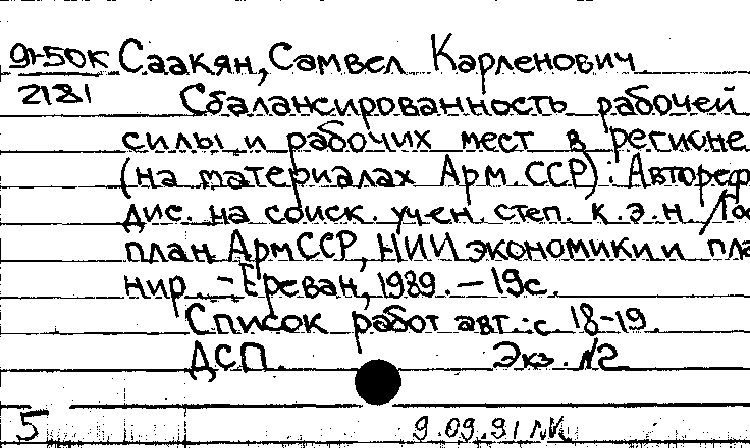 91-50К Саакян, Самвел Карленович
2181 Сбалансированность рабочей
силы и рабочих мест в регионе
(на материалах Арм.ССР): Автореф
дис. на соиск. учен. степ. к.э.н. /Гос
план АрмССР, НИИ экономики и пла
нир. - Ереван, 1989. - 19с.
Список работ авт.: с. 18-19.
ДСП. Экз. №2
5 9.09.91